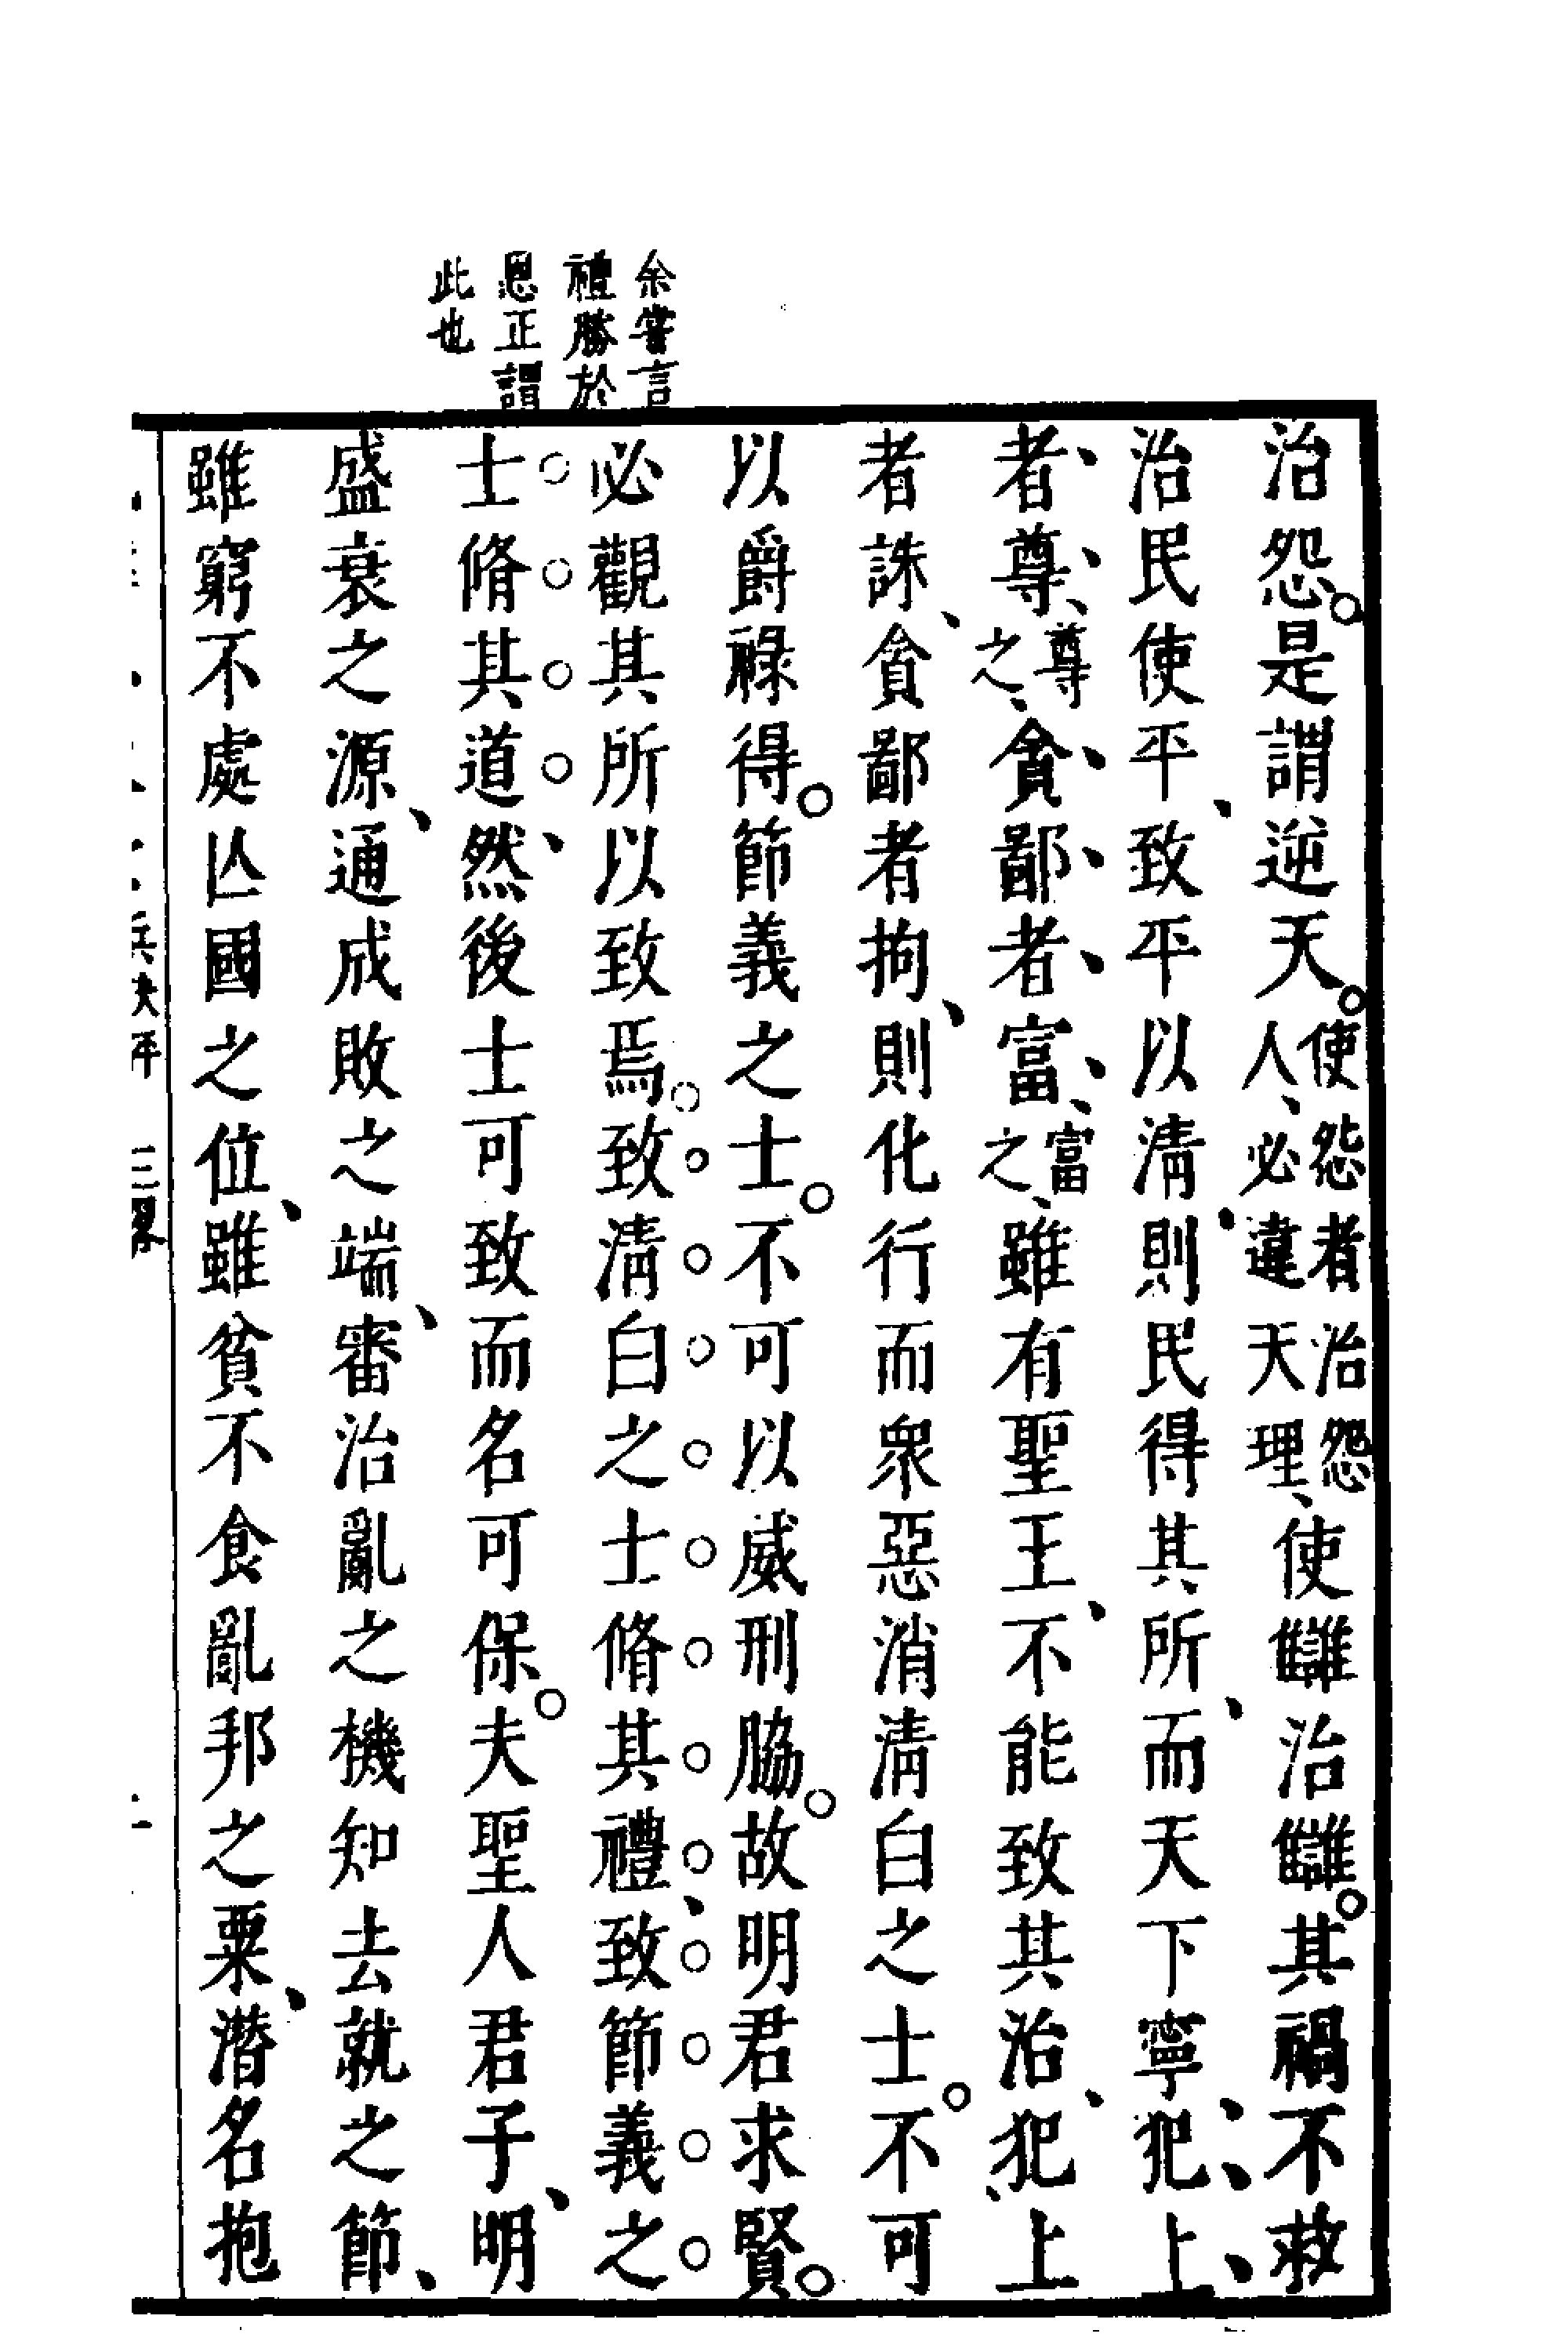 余嘗言
禮勝於
恩正謂
此也
治怨。是謂逆天。使怨者治怨人、必違天理、使讎治讎。其禍不救
治民使平、致平以清、則民得其所、而天下寧、犯上
者尊、尊之、貪鄙者富、富之、雖有聖王、不能致其治、犯上
者誅、貪鄙者拘、則化行而衆惡消清白之士。不可
以爵祿得。節義之士。不可以威刑脇。故明君求賢。
必觀其所以致焉。致清白之士脩其禮、致節義之
士脩其道、然後士可致而名可保。夫聖人君子、明
盛衰之源、通成敗之端、審治亂之機知去就之節、
雖窮不處亾國之位、雖貧不食亂邦之粟、潛名抱